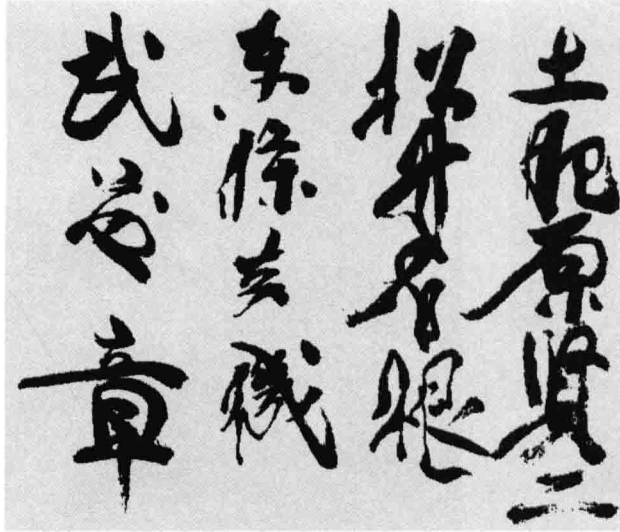 土肥原賢二
松井石根
東條英機
武藤章